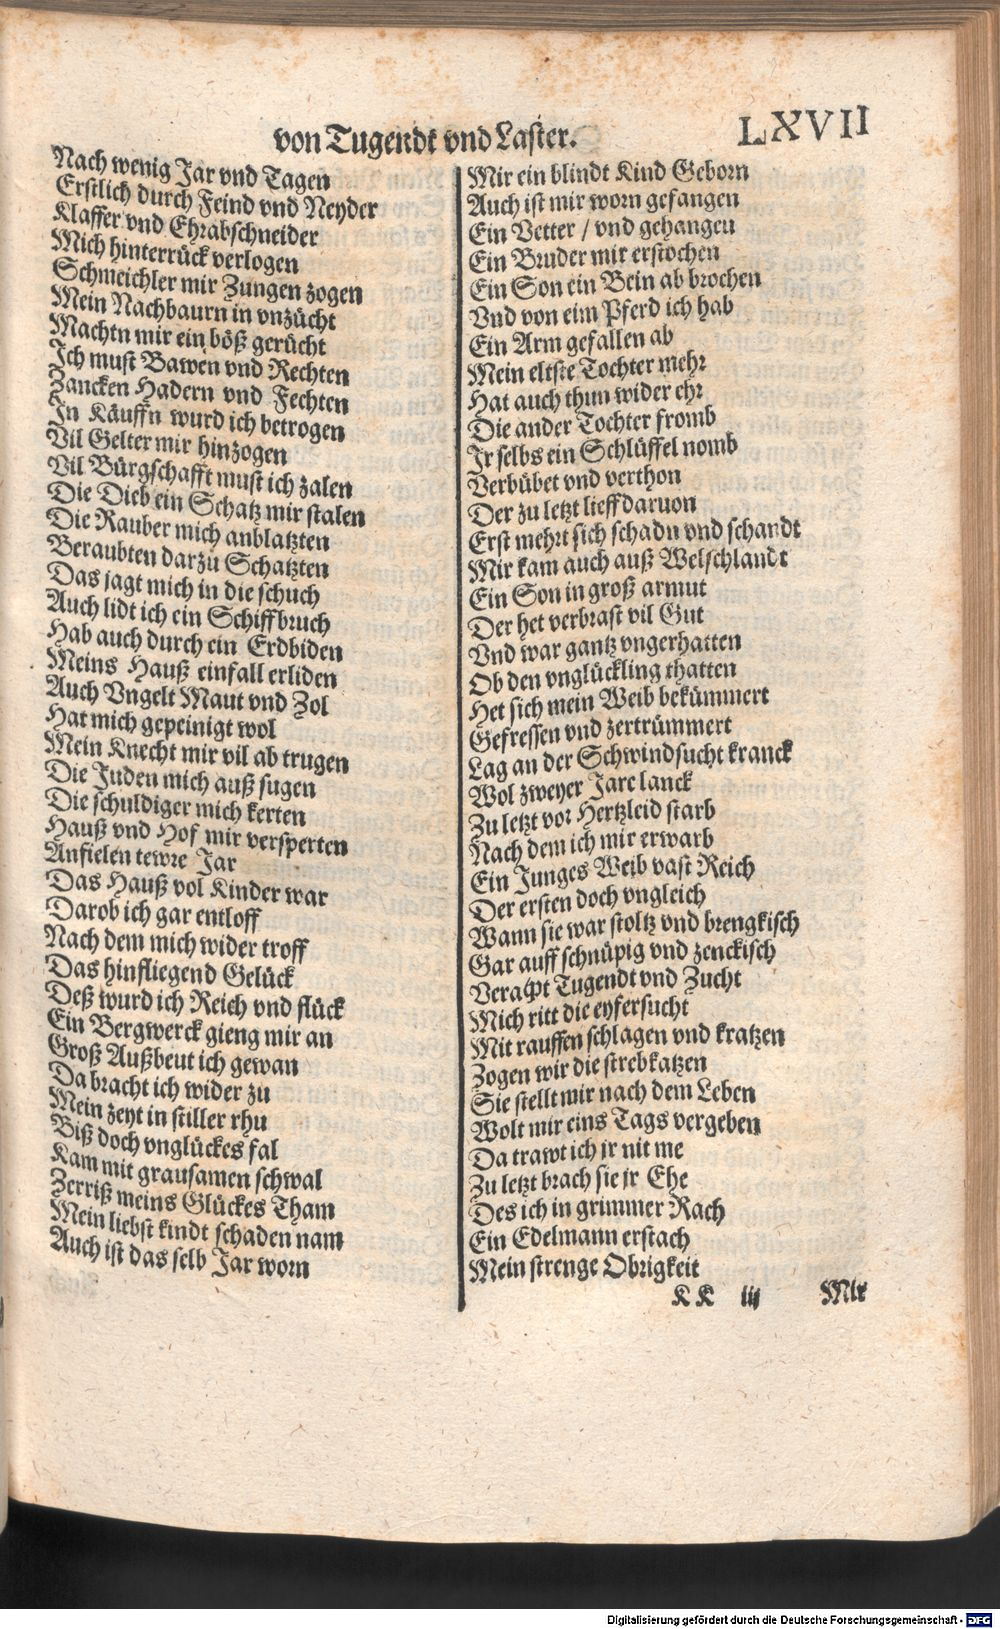 von Tugendt vnd Laster.
LXVII
Nach wenig Jar vnd Tagen
Erstlich durch Feind vnd Neyder
Klaffer vnd Ehrabschneider
Mich hinterrück verlogen
Schmeichler mir Zungen zogen
Mein Nachbaurn in vnzücht
Machtn mir ein böß gerücht
Ich must Bawen vnd Rechten
Zancken Hadern vnd Fechten
In Käuffn wurd ich betrogen
Vil Gelter mir hinzogen
Vil Bürgschafft must ich zalen
Die Dieb ein Schatz mir stalen
Die Rauber mich anblatzten
Beraubten darzu Schatzten
Das jagt mich in die schuch
Auch lidt ich ein Schiffbruch
Hab auch durch ein Erdbiden
Meins Hauß einfall erliden
Auch Vngelt Maut vnd Zol
Hat mich gepeinigt wol
Mein Knecht mir vil ab trugen
Die Juden mich auß sugen
Die schuldiger mich kerten
Hauß vnd Hof mir versperten
Anfielen tewre Jar
Das Hauß vol Kinder war
Darob ich gar entloff
Nach dem mich wider troff
Das hinfliegend Gelück
Deß wurd ich Reich vnd flück
Ein Bergwerck gieng mir an
Groß Außbeut ich gewan
Da bracht ich wider zu
Mein zeyt in stiller rhu
Biß doch vnglückes fal
Kam mit grausamen schwal
Zerriß meins Glückes Tham
Mein liebst kindt schaden nam
Auch ist das selb Jar worn
Mir ein blindt Kind Geborn
Auch ist mir worn gefangen
Ein Vetter / vnd gehangen
Ein Bruder mir erstochen
Ein Son ein Bein ab brochen
Vnd von eim Pferd ich hab
Ein Arm gefallen ab
Mein eltste Tochter mehr
Hat auch thun wider ehr
Die ander Tochter fromb
Ir selbs ein Schlüffel nomb
Verbübet vnd verthon
Der zu letzt lieff daruon
Erst mehrt sich schadn vnd schandt
Mir kam auch auß Welschlandt
Ein Son in groß armut
Der het verbrast vil Gut
Vnd war gantz vngerhatten
Ob den vnglückling thatten
Het sich mein Weib bekümmert
Gefressen vnd zertrümmert
Lag an der Schwindsucht kranck
Wol zweyer Jare lanck
Zu letzt vor Hertzleid starb
Nach dem ich mir erwarb
Ein Junges Weib vast Reich
Der ersten doch vngleich
Wann sie war stoltz vnd brengkisch
Gar auff schnüpig vnd zenckisch
Veracht Tugendt vnd Zucht
Mich ritt die eyfersucht
Mit rauffen schlagen vnd kratzen
Zogen wir die strebkatzen
Sie stellt mir nach dem Leben
Wolt mir eins Tags vergeben
Da trawt ich jr nit me
Zu letzt brach sie jr Ehe
Des ich in grimmer Rach
Ein Edelmann erstach
Mein strenge Obrigkeit
KK iij Mir
Digitalisierung gefördert durch die Deutsche Forschungsgemeinschaft - DFG